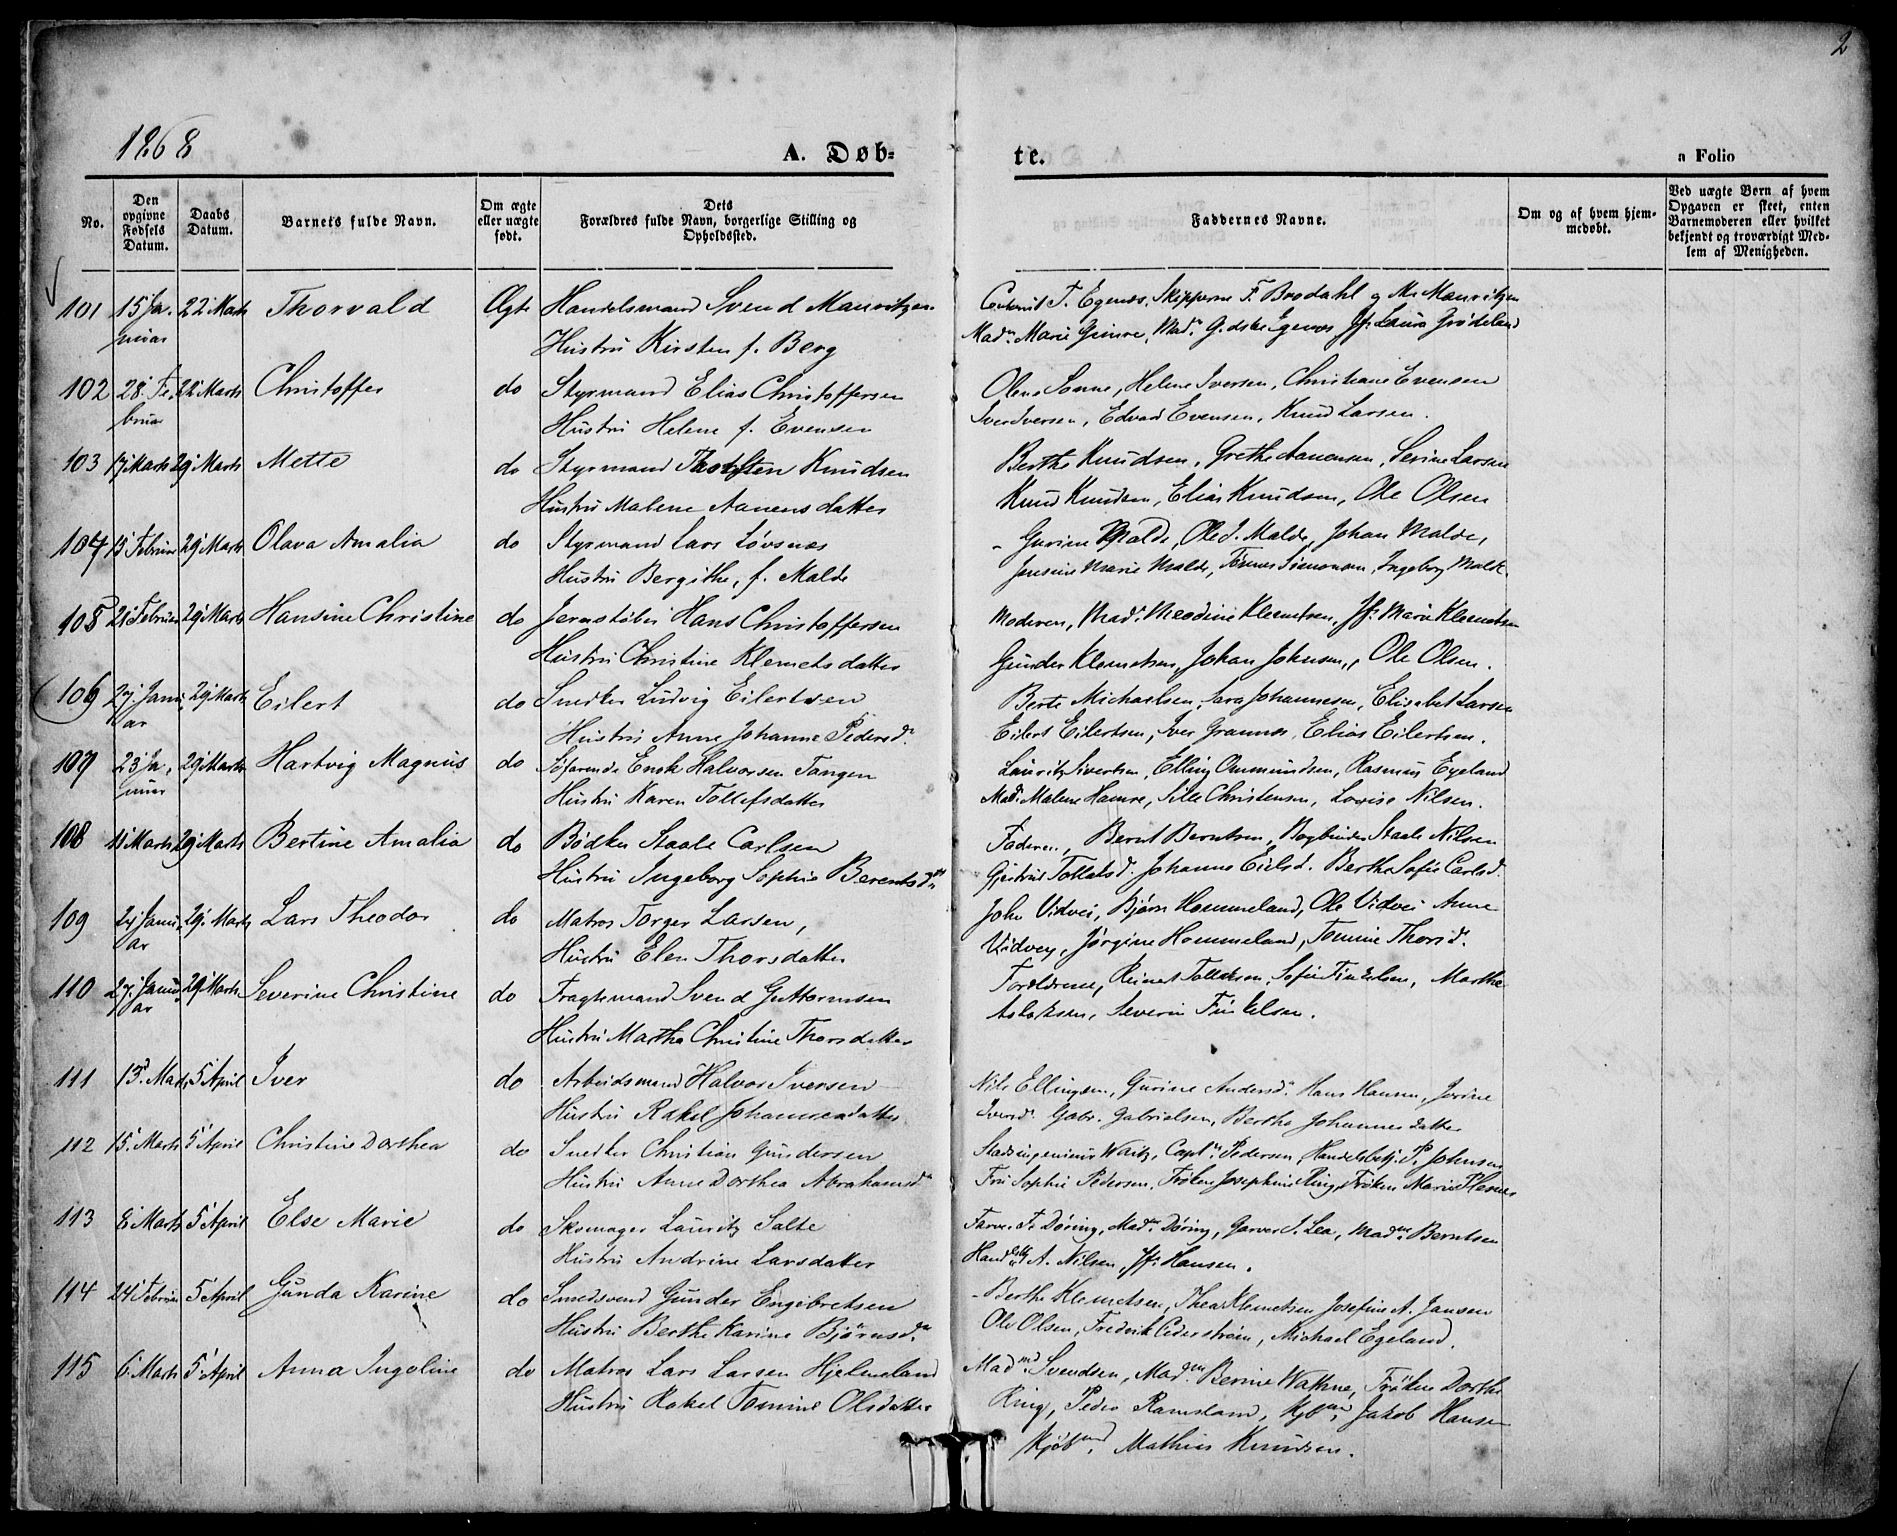 2
1868
A. Døb-
te.
n Folio
No.
Den opgivne Fødsels Datum.
Daabs Datum.
Barnets fulde Navn.
Om ægte eller uægte født.
Dets Forældres fulde Navn, borgerlige Stilling og Opholdssted.
Faddernes Navne.
Om og af hvem hjemmedøbt.
Ved uægte Børn af hvem Opgaven er skeet, enten Barnemoderen eller hvilket bekjendt og troværdigt Medlem af Menigheden.
101 15 Januar 22 Marts Thorvald Ægte Handelsmand Svend Mauritzen
Hustru Kirsten f. Berg
T. Egenæs, Skipperne F. Brodahl og M. Mauritzen
Madm. Marie Gimre, Madm. Egenæs Jfr. Laura Grødeland
102 28 Februar 22 Marts Christoffer do Styrmand Elias Christoffersen
Hustru Helene f. Evensen
Olene Sonne, Helene Iversen, Christiane Evensen
Iver Iversen, Edvard Evensen, Knud Larsen.
103 17 Marts 29 Marts Mette do Styrmand Thorsten Knudsen
Hustru Malene Aanensdatter
Berthe Knudsen, Grethe Aanensen, Serine Larsen
Knud Knudsen, Elias Knudsen, Ole Olsen
104 15 Februar 29 Marts Olava Amalia do Styrmand Lars Løvsnæs
Hustru Bergithe, f. Malde
Gurine Malde, Ole J. Malde, Johan Malde,
Jensine Marie Malde, Tønnes Simonsen, Ingeborg Malde
105 21 Februar 29 Marts Hansine Christine do Jernstøber Hans Christoffersen
Hustru Christine Klemetsdatter
Moderen, Madm. Klemetsen, Jfr. Marie Klemetsen
Gunder Klemetsen, Johan Johnsen, Ole Olsen.
106 27 Januar 29 Marts Eilert do Snedker Ludvig Eilertsen
Hustru Anne Johanne Pedersdr.
Berte Michaelsen, Sara Johannesen, Elisabet Larsen
Eilert Eilertsen, Iver Grannes, Elias Eilertsen.
107 23 Januar 29 Marts Hartvig Magnus do Søfarende Enok Halvorsen Tangen
Hustru Karen Tollefsdatter
Lauritz Sivertsen, Elling Ommundsen, Rasmus Egeland
Madm. Malene Hamre, Sille Christensen, Lovise Nilsen.
108 11 Marts 29 Marts Bertine Amalia do Bødker Staale Carlsen
Hustru Ingeborg Sophie Berentsdr.
Faderen, Bernt Berntsen, Bogbinder Staale Nilsen
Gjertrud Tollaksd. Johanne Eielsd. Berthe Sofie Carlsd.
109 24 Januar 29 Marts Lars Theodor do Matros Torger Larsen,
Hustru Elen Thorsdatter
John Vidvei, Bjørn Hommeland, Ole Vidvei Anne
Vidvey, Jørgine Hommeland, Tomine Thorsd.
110 27 Januar 29 Marts Severine Christine do Fragtemand Svend Guttormsen
Hustru Martha Christine Thorsdatter
Forældrene, Reinert Tollaksen, Sofie Finkelsen, Martha
Aslaksen, Severin Finkelsen.
111 13 Marts 5 April Iver do Arbeidsmand Halvor Iversen
Hustru Rakel Johannesdatter
Nils Ellingsen, Gurine Andersdr. Hans Hansen, Jorine
Iversdr. Gabr. Gabrielsen, Berthe Johannesdatter
112 15 Marts 5 April Christine Dorthea do Snedker Christian Gundersen
Hustru Anne Dorthea Abrahamsdr.
Stadsingeniør Waitz, Captn. Pedersen, Handelsbetj. P. Johnsen
Fru Sophie Pedersen, Frøken Josephine Ring, Frøken Marie
113 8 Marts 5 April Else Marie do Skomager Lauritz Salte
Hustru Andrine Larsdatter
Farver F. Døring, Madm. Døring, Garver S. Lea, Madm. Berntsen
A. Nilsen, Jfr. Hansen.
114 24 Februar 5 April Gunda Karine do Smedsvend Gunder Engebretsen
Hustru Berthe Karine Bjørnsdr.
Berthe Klemetsen, Thea Klemetsen Josefine A. Jansen
Ole Olsen, Fredrik Cederstrøm, Michael Egeland.
115 6 Marts 5 April Anna Ingoline do Matros Lars Larsen Hjelmeland
Hustru Rakel Tomine Olsdatter
Madm. Svendsen, Madm. Berine Wathne, Frøken Dorthe
Ring, Peder Ramsland, Kjbmd. Jakob Hansen
Kjøbmd. Mathias Knudsen.